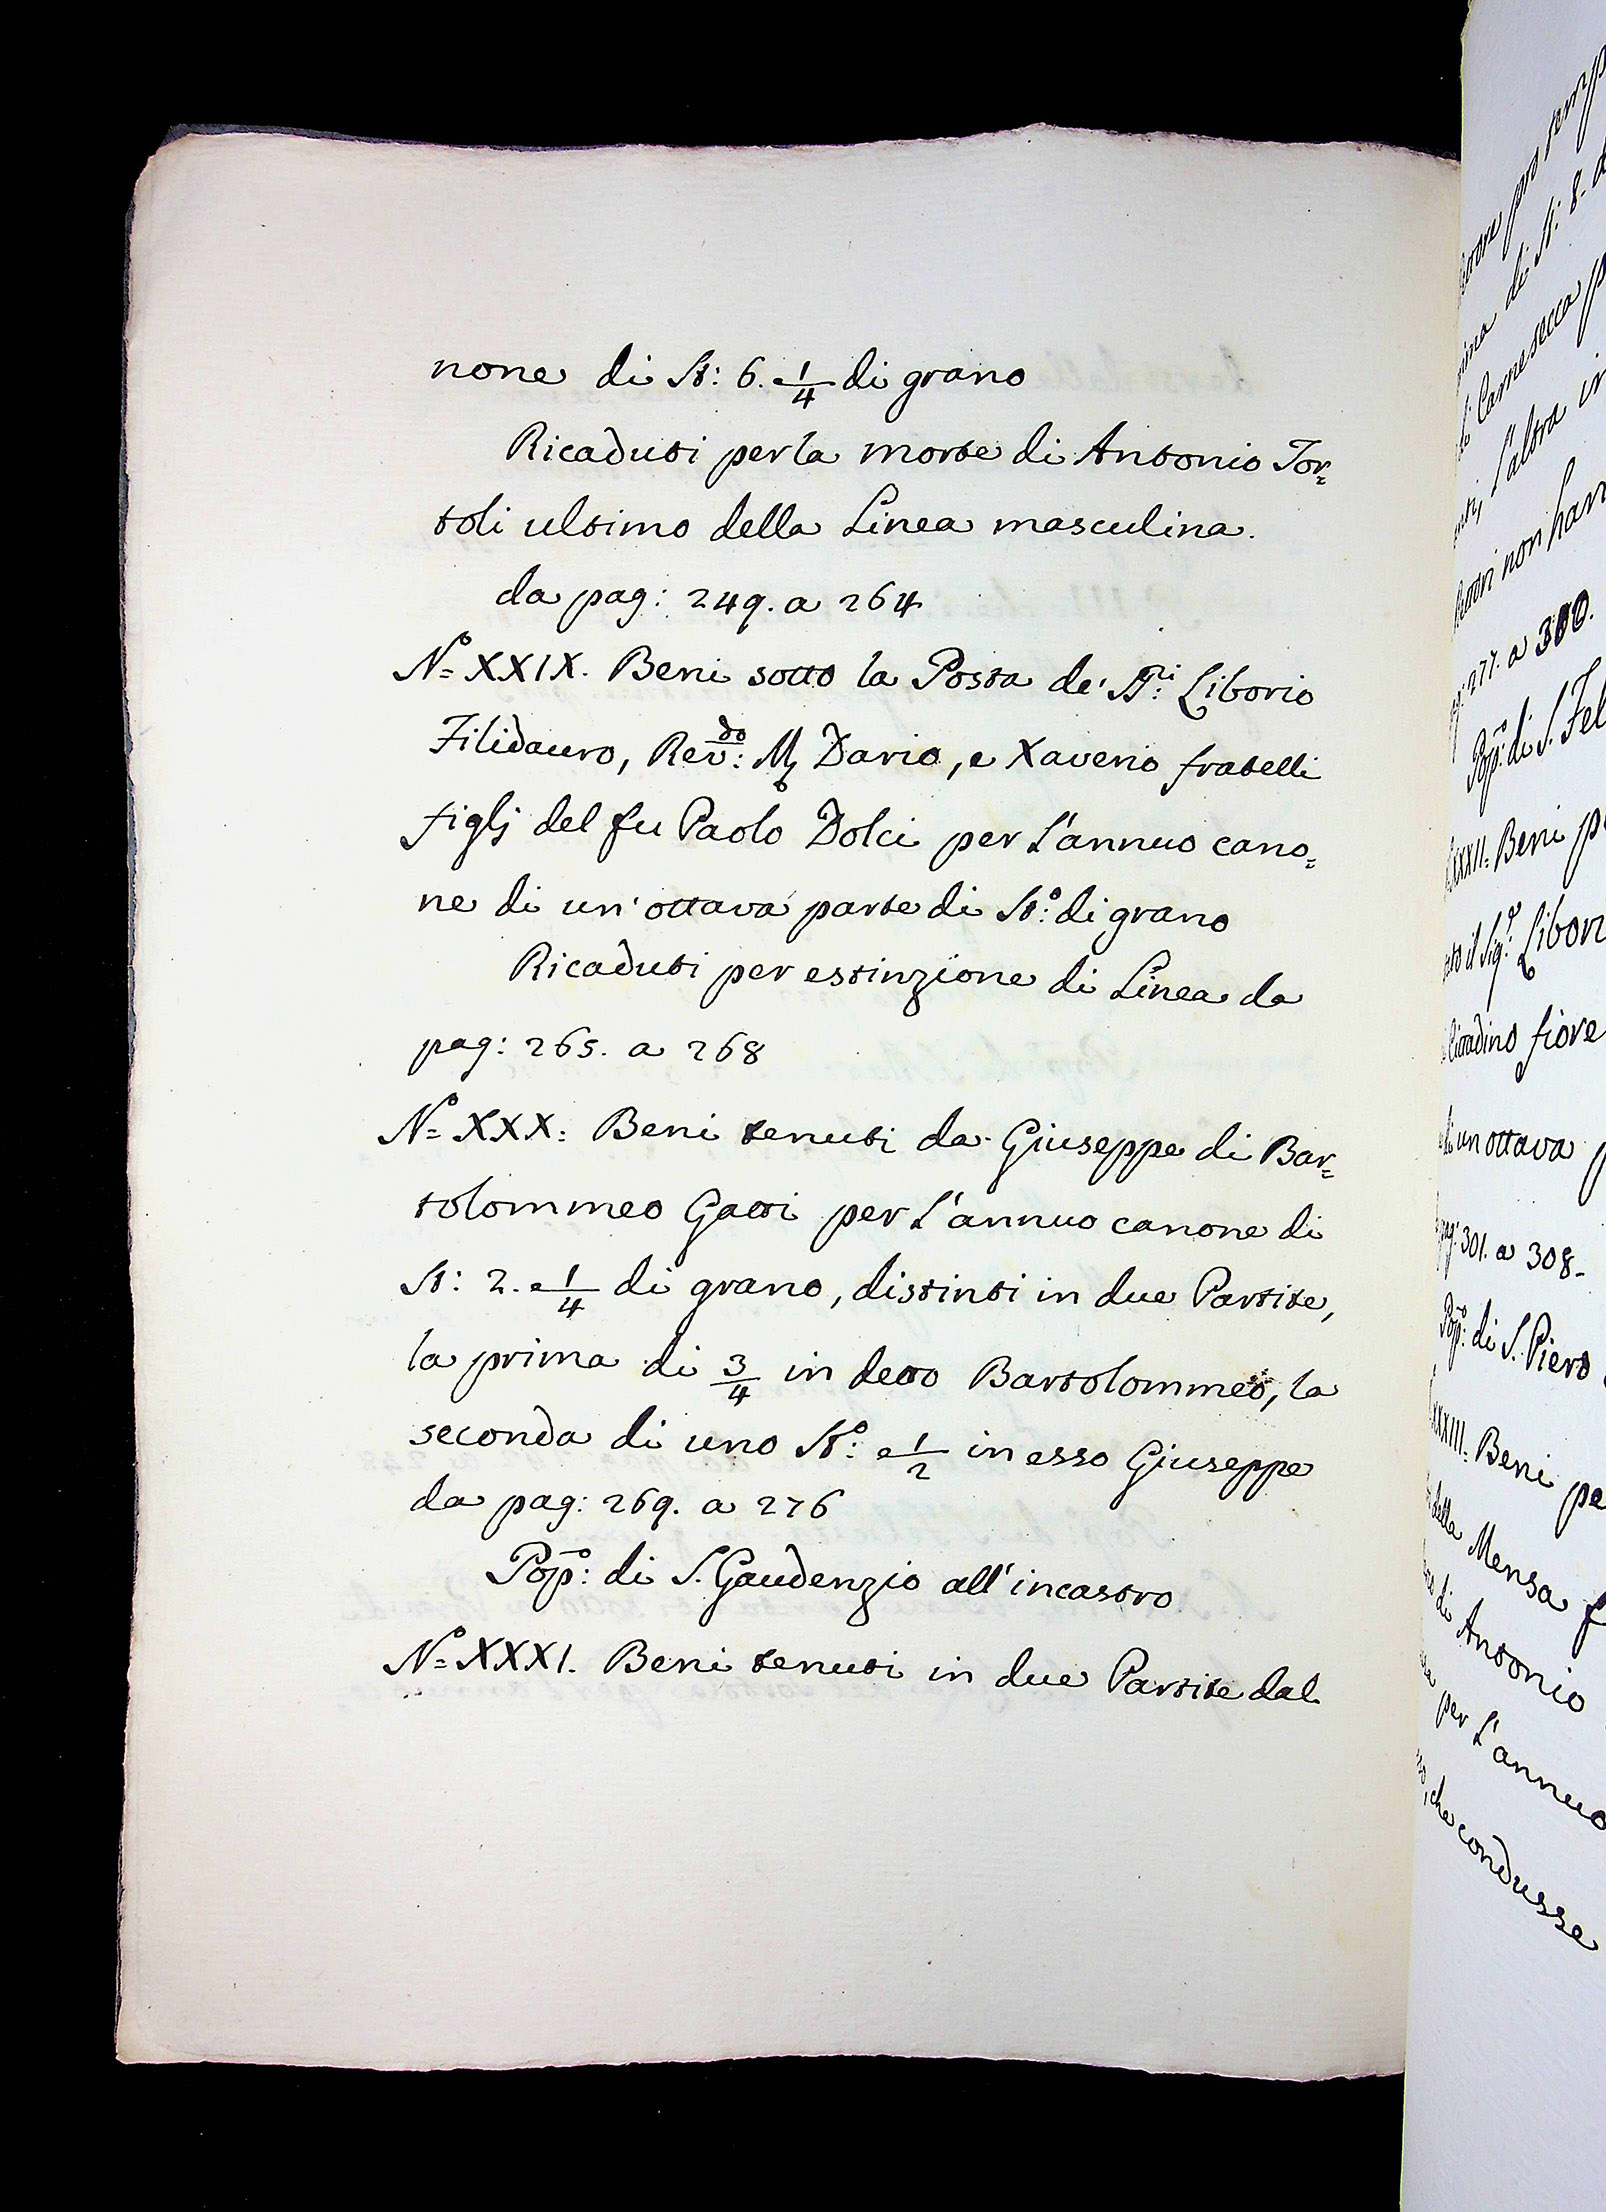 none di St: 6. e 1/4 di grano
Ricaduti per la morte di Antonio Tor=
toli ultimo della Linea masculina.
da pag: 249. a 264
N.º XXIX. Beni sotto la Posta de' SS.ri Liborio
Filidauro, Rev.do: M Dario, e Xaverio fratelli
figlj del fu Paolo Dolci per l'annuo cano=
ne di un' ottava parte di St.º: di grano
Ricaduti per estinzione di Linea da
pag: 265. a 268
N.º XXX. Beni tenuti da Giuseppe di Bar=
tolommeo Gatti per l'annuo canone di
St: 2. e 1/4 di grano, distinti in due Partite,
la prima di 3/4 in detto Bartolommeo, la
seconda di uno St.º: e 1/2 in esso Giuseppe
da pag: 269. a 276
Pop.º: di S. Gaudenzio all' incastro
N.º XXXI. Beni tenuti in due Partite dal
pro temp
di St: 8. d
Carnesecca p
l'altra in
non han
277. a 300.
Pop.º: di S. Fel
XXXII. Beni p
il Sig.r: Libori
Cittadino fiore
un ottava p
pag: 301. a 308.
Pop.º: di S. Piero
XXXIII. Beni pe
della Mensa f
di Antonio
per l'annuo
, che condusse